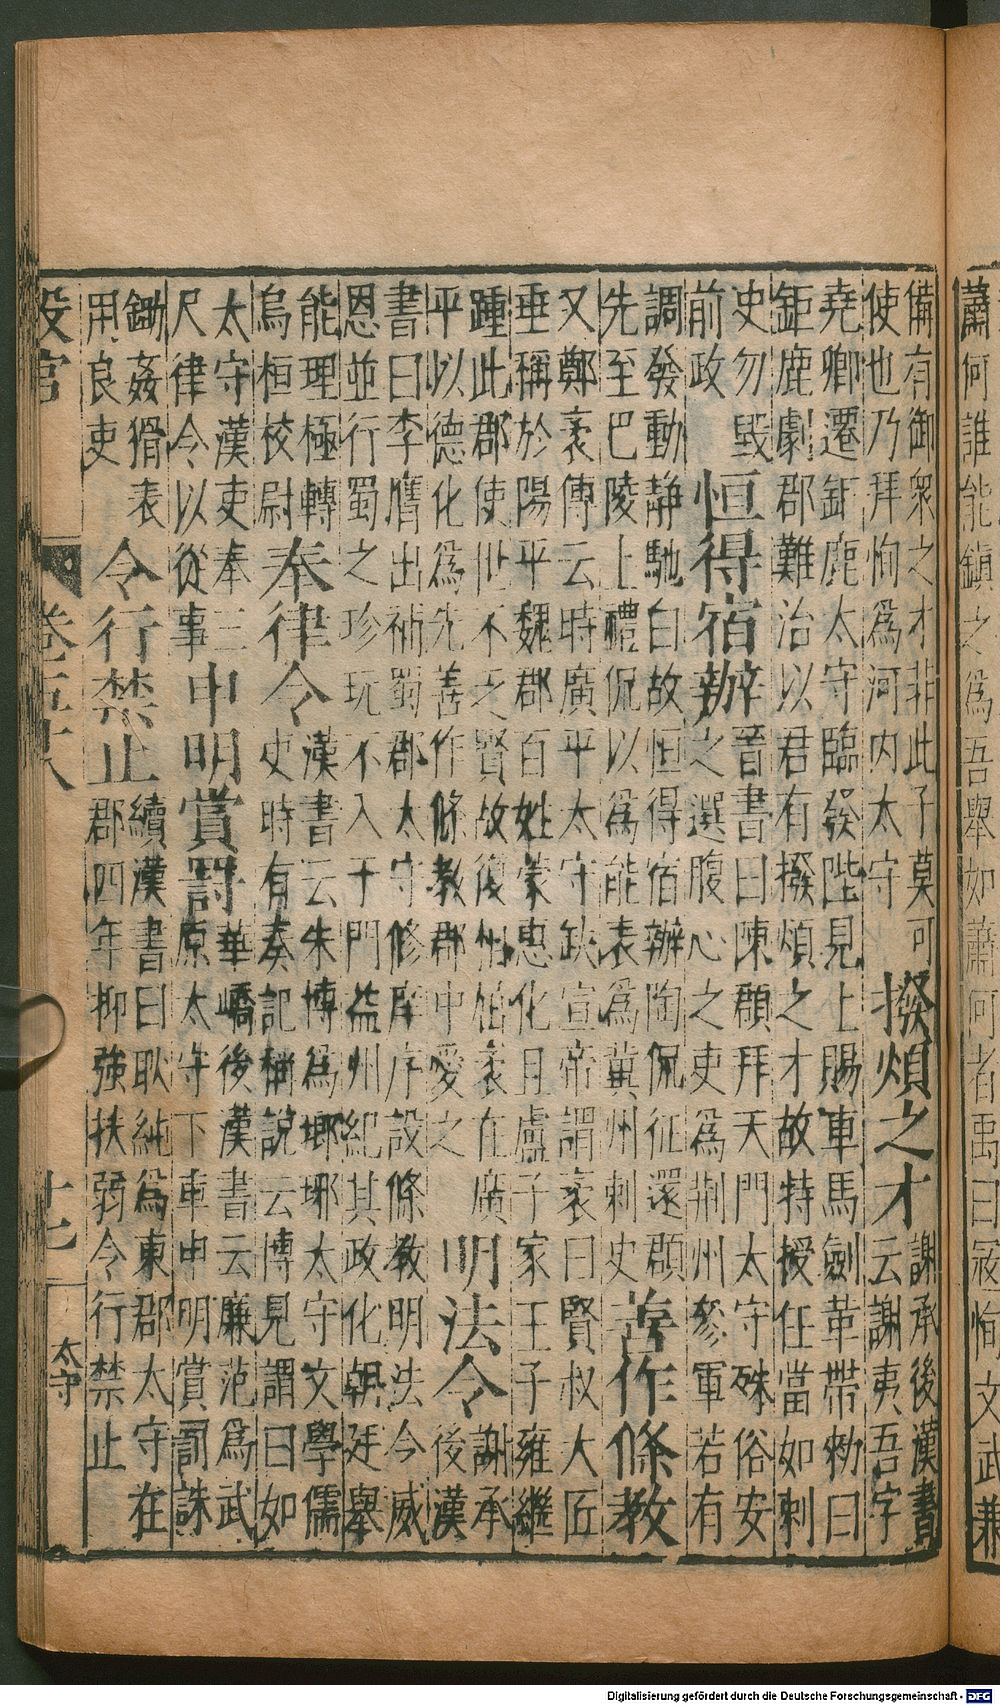 蕭何誰能鎮之為吾舉如蕭何者禹曰寇恂文武兼
備有御衆之才非此子莫可
使也乃拜恂為河内太守
撥煩之才
謝承後漢書
云謝夷吾字
堯卿遷鉅鹿太守臨發陛見上賜車馬劍革帶勑曰
鉅鹿劇郡難治以君有撥煩之才故特授任當如刺
史勿毀
前政
恒得宿辦
晉書曰陳頵拜天門太守殊俗安
之選腹心之吏為荆州參軍若有
調發動静馳白故恒得宿辦陶侃征還頵
先至巴陵上禮侃以為能表為冀州刺史
善作條教
又鄭袤傳云時廣平太守缺宣帝謂袤曰賢叔大匠
垂稱於陽平魏郡百姓蒙惠化且盧子家王子雍繼
踵此郡使世不乏賢故復相屈袤在廣
平以德化為先善作條教郡中愛之
明法令
謝承
後漢
書曰李膺出補蜀郡太守修庠序設條教明法令威
恩並行蜀之珍玩不入于門益州紀其政化朝廷舉
能理極轉
烏桓校尉
奉律令
漢書云朱博為瑯琊太守文學儒
吏時有奏記稱說云博見謂曰如
太守漢吏奉三
尺律令以從事
申明賞罰
華嶠後漢書云廉范為武
原太守下車申明賞罰誅
鋤姦猾表
用良吏
令行禁止
續漢書曰耿純為東郡太守在
郡四年抑強扶弱令行禁止
設官
太守
Digitalisierung gefördert durch die Deutsche Forschungsgemeinschaft - DFG